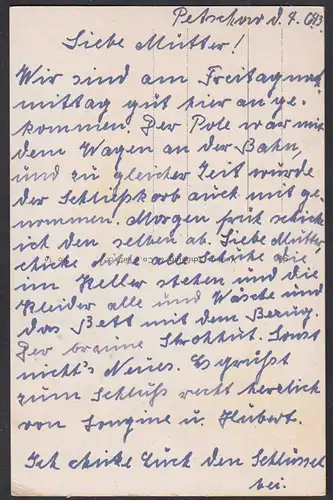 Petschow d. 4. 
Liebe Mutter!
Wir sind am Freitag nach
mittag gut hier ange
kommen. Der Pole war mit
dem Wagen an der Bahn,
und zu gleicher Zeit wurde
der Schließkorb auch mit ge
nommen. Morgen früh schick
ich den selben ab. Liebe Mutter
schicke die
im Keller stehen und die
Kleider alle und Wäsche und
das Bett mit dem Bezug.
Der braune Strohhut. Sonst
nicht's Neues. Es grüßt
zum Schluß recht herzlich
von u. Hubert.
Ich schicke Euch den Schlüssel
bei